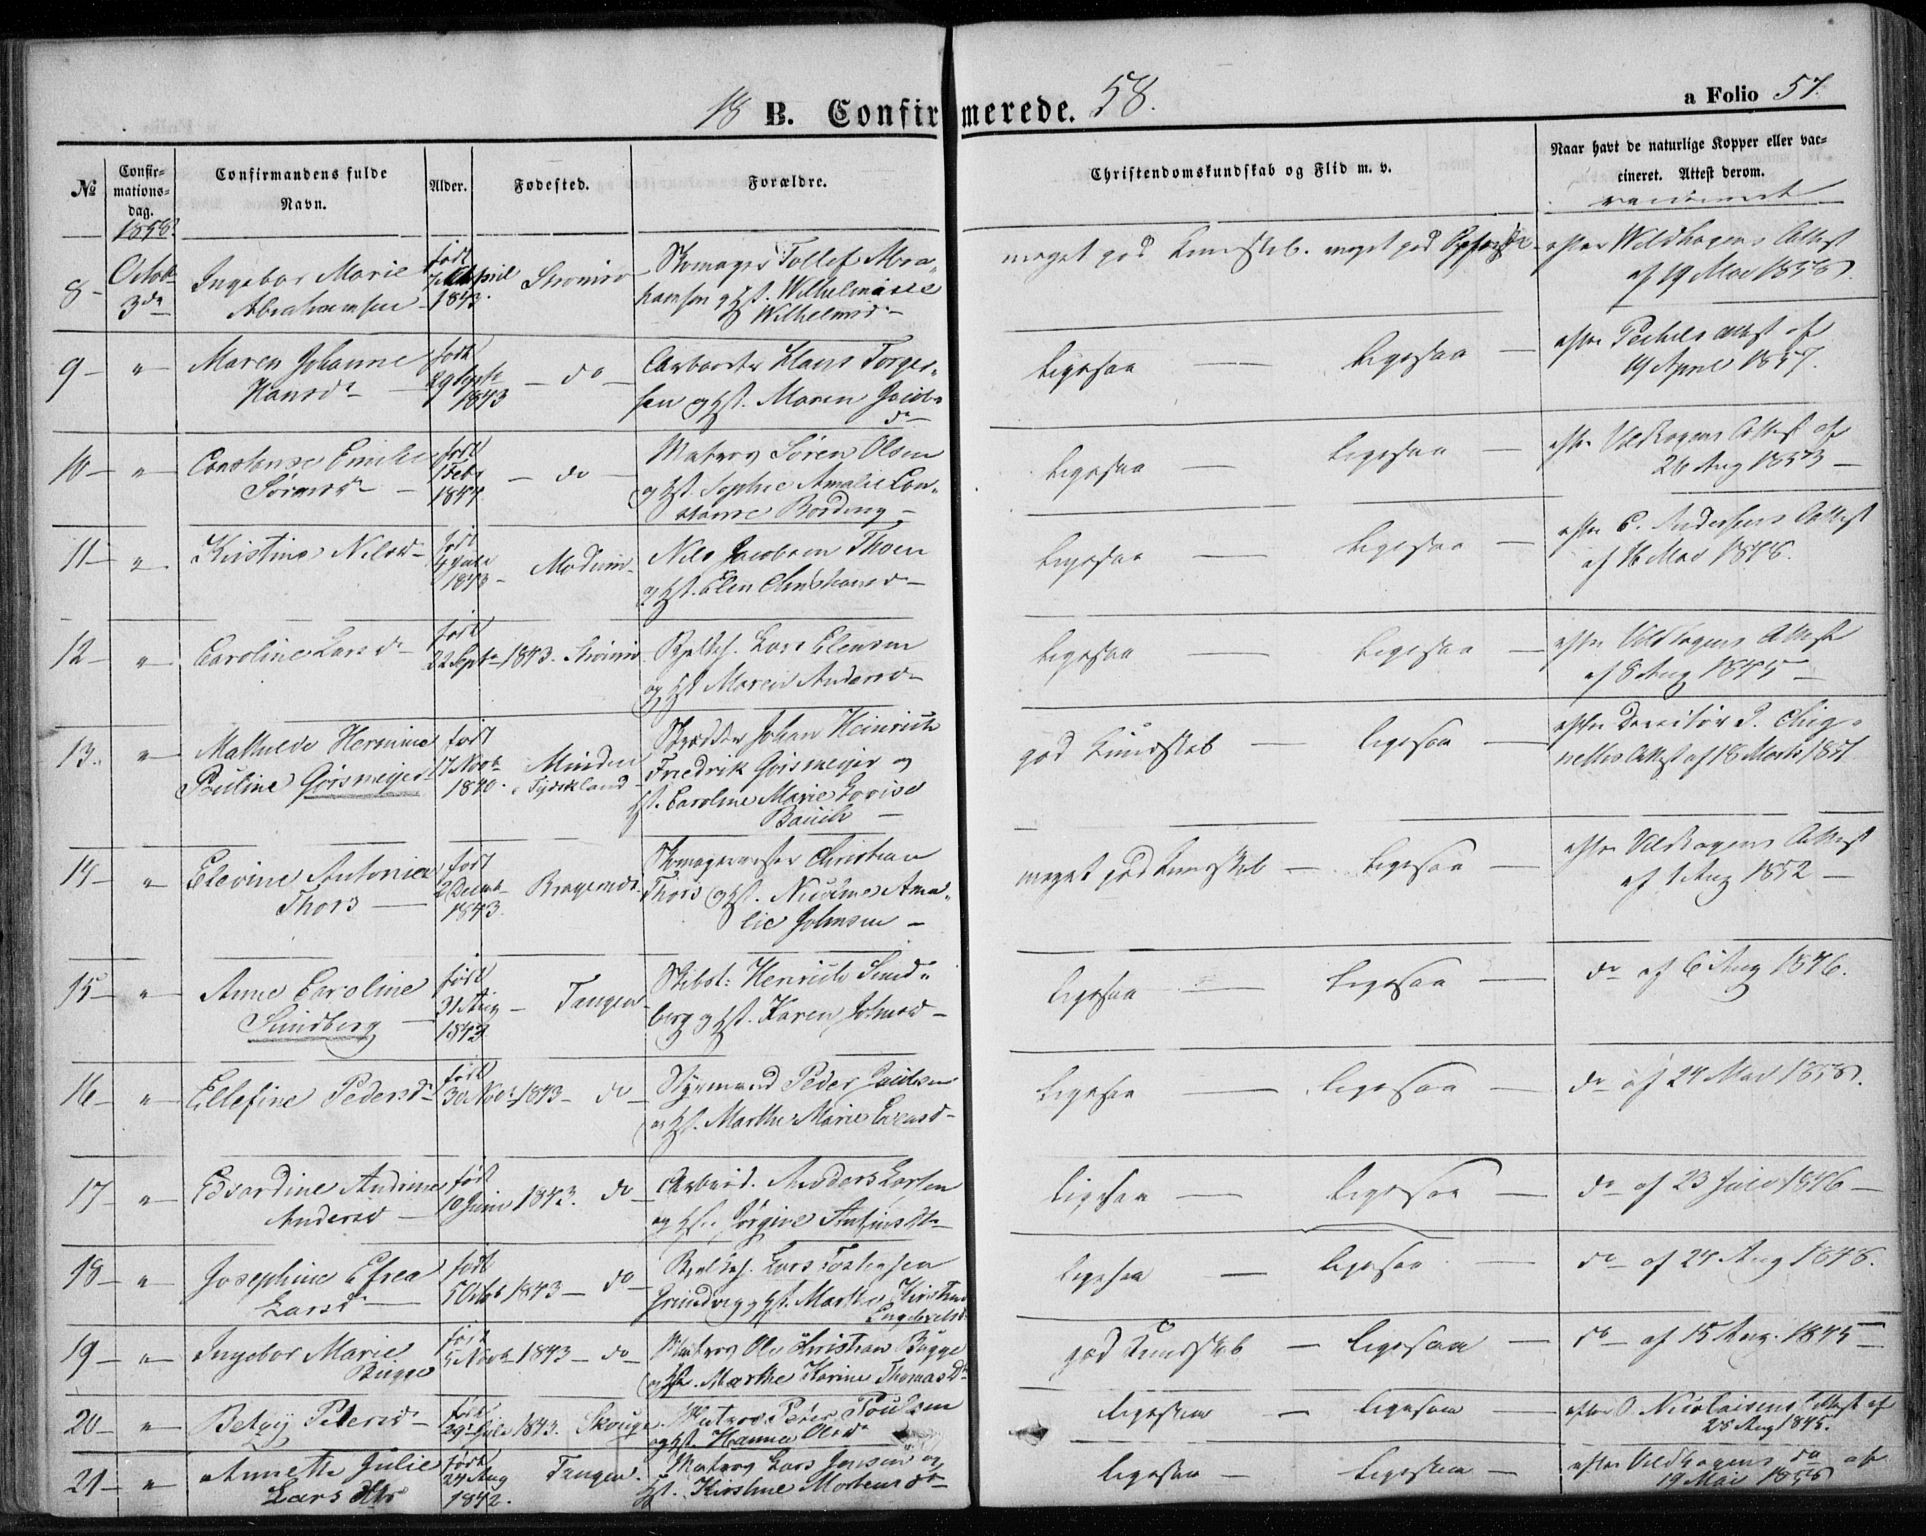 18 B. Confirmerede. 58.
a Folio 57.
No
Confirmationsdag.
Confirmandens fulde Navn.
Alder.
Fødested.
Forældre.
Christendomskundskab og Flid m. v.
Naar havt de naturlige Kopper eller vaccineret. Attest derom.
1858.
8 - Octob 3de
Ingebor Marie
Abrahamsen
født
April
1843.
Strømsø
Skomager Tollef Abra-
hamsen og Hst. Wilhelmine
Wilhelmsd
meget god Kundskab. meget god Opførsel
efter Wildhagens Attest
af 19 Mai 1858.
9 - "
Maren Johanne
Hansd
født
29 Sept
1843
do
Arbeider Hans Torger-
sen og Hst. Maren Jacob-
ligesaa - ligesaa
efter Attest af
19 April 1857.
10 - "
Constanse Emilie
Sørensd
født
Feb
1844
do
Matros Søren Olsen
og Hst. Sophie Amalie Con-
stance Bording
ligesaa - ligesaa
efter Vildhagens Attest af
26 Aug 1853
11 - "
Kirstine Nilsd
født
1843
Modum
Nils Jacobsen Thoen
og Hst. Elen Christiansd
ligesaa - ligesaa
efter C. Andersens Attest
af 16 Mai 1848.
12 - "
Caroline Larsd
født
22 Sept 1843. Strømsø
Lars Elensen
og Hst. Maren Andersd
ligesaa - ligesaa
efter Vildhagens Attest
af 8 Aug 1845
13. "
Mathilde Hermine
Pauline Görsmeijer
født
17 Novb
1840.
Minden
i Tydskland
Skrædder Johan Heinrich
Friedrik Görsmeijer og
Hst. Caroline Marie Lovise
god Kundskab - ligesaa
Attest af 18 Marts 1851
14 - "
Elevine Antonia
Thors
født
2 Decemb
1843.
Bragernæs
Skomagermester Christian
Thors og Hst. Nicoline Ama-
lie Johnsen
meget god Kundskab - ligesaa
efter Vildhagens Attest
af 1 Aug 1852
15 - "
Anne Caroline
Sundberg
født
21 Aug
1843
Tangen
Skibst: Henrich Sund-
berg og Hst. Karen Johnsd
ligesaa - ligesaa
do af 6 Aug 1846.
16 - "
Ellefine Pedersd
født
30 Novb 1843 - do
Styrmand Peder Jacobsen
og Hst. Marthe Marie
ligesaa - ligesaa
do af 24 Mai 1858.
17 - "
Edvardine Andrine
Andersd
født
10 Juni 1843. do
Arbeid. Anders Larsen
og Hst. Jørgine
ligesaa - ligesaa
do af 23 Juli 1846
18 - "
Josephine Efrea
Larsd
født
5 Octob 1843 - do
Lars Tostensen
Grundvig og Hst. Marthe Kirstine
Engebretsd
ligesaa - ligesaa
do af 24 Aug 1848.
19 - "
Ingebor Marie
Bugge
født
5 Novb 1843 - do
Matros Ole Christian Bugge
og Hst. Marthe Karine Thomasd
god Kundskab - ligesaa
do af 15 Aug. 1845
20 - "
Betzij Petersd
født
29 Juli 1843. Skouge
Matros Peter Poulsen
og Hst. Hanna Olsd
ligesaa - ligesaa
efter O. Nicolaisens Attest af
28 Aug 1845.
21 - "
Annette Julie
Larsdtr
født
24 Aug
1842.
Tangen.
Matros Lars Jensen og
Hst. Kirstine Mortensd
ligesaa - ligesaa
efter Vildhagens do af
19 Mai 1858